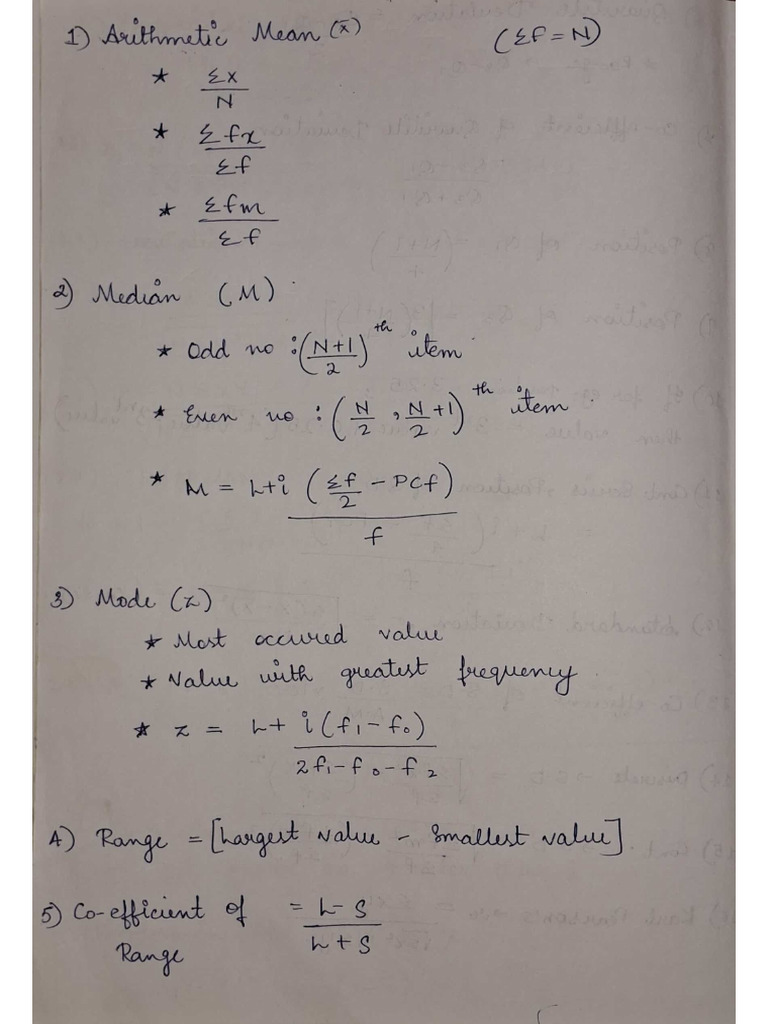 1) Arithmetic Mean (x̄) (Σf = N)
* Σx / N
* Σfx / Σf
* Σfm / Σf
2) Median (M)
* Odd no : (N+1 / 2)th item
* Even no : (N/2 , N/2 + 1)th item
* M = L+i (Σf/2 - PCf) / f
3) Mode (z)
* Most occured value
* Value with greatest frequency
* z = L+ i(f₁-f₀) / 2f₁-f₀-f₂
4) Range = [Largest value - Smallest value]
5) Co-efficient of = L-S / L+S
Range